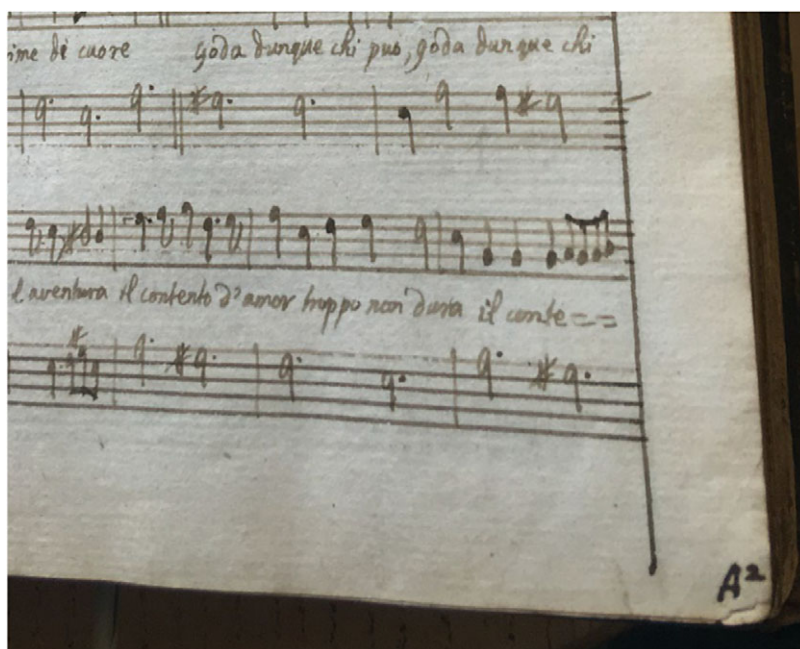 ime di cuore goda dunque chi puo, goda dunque chi
l'aventura il contento d'amor troppo non dura il conte==
A²